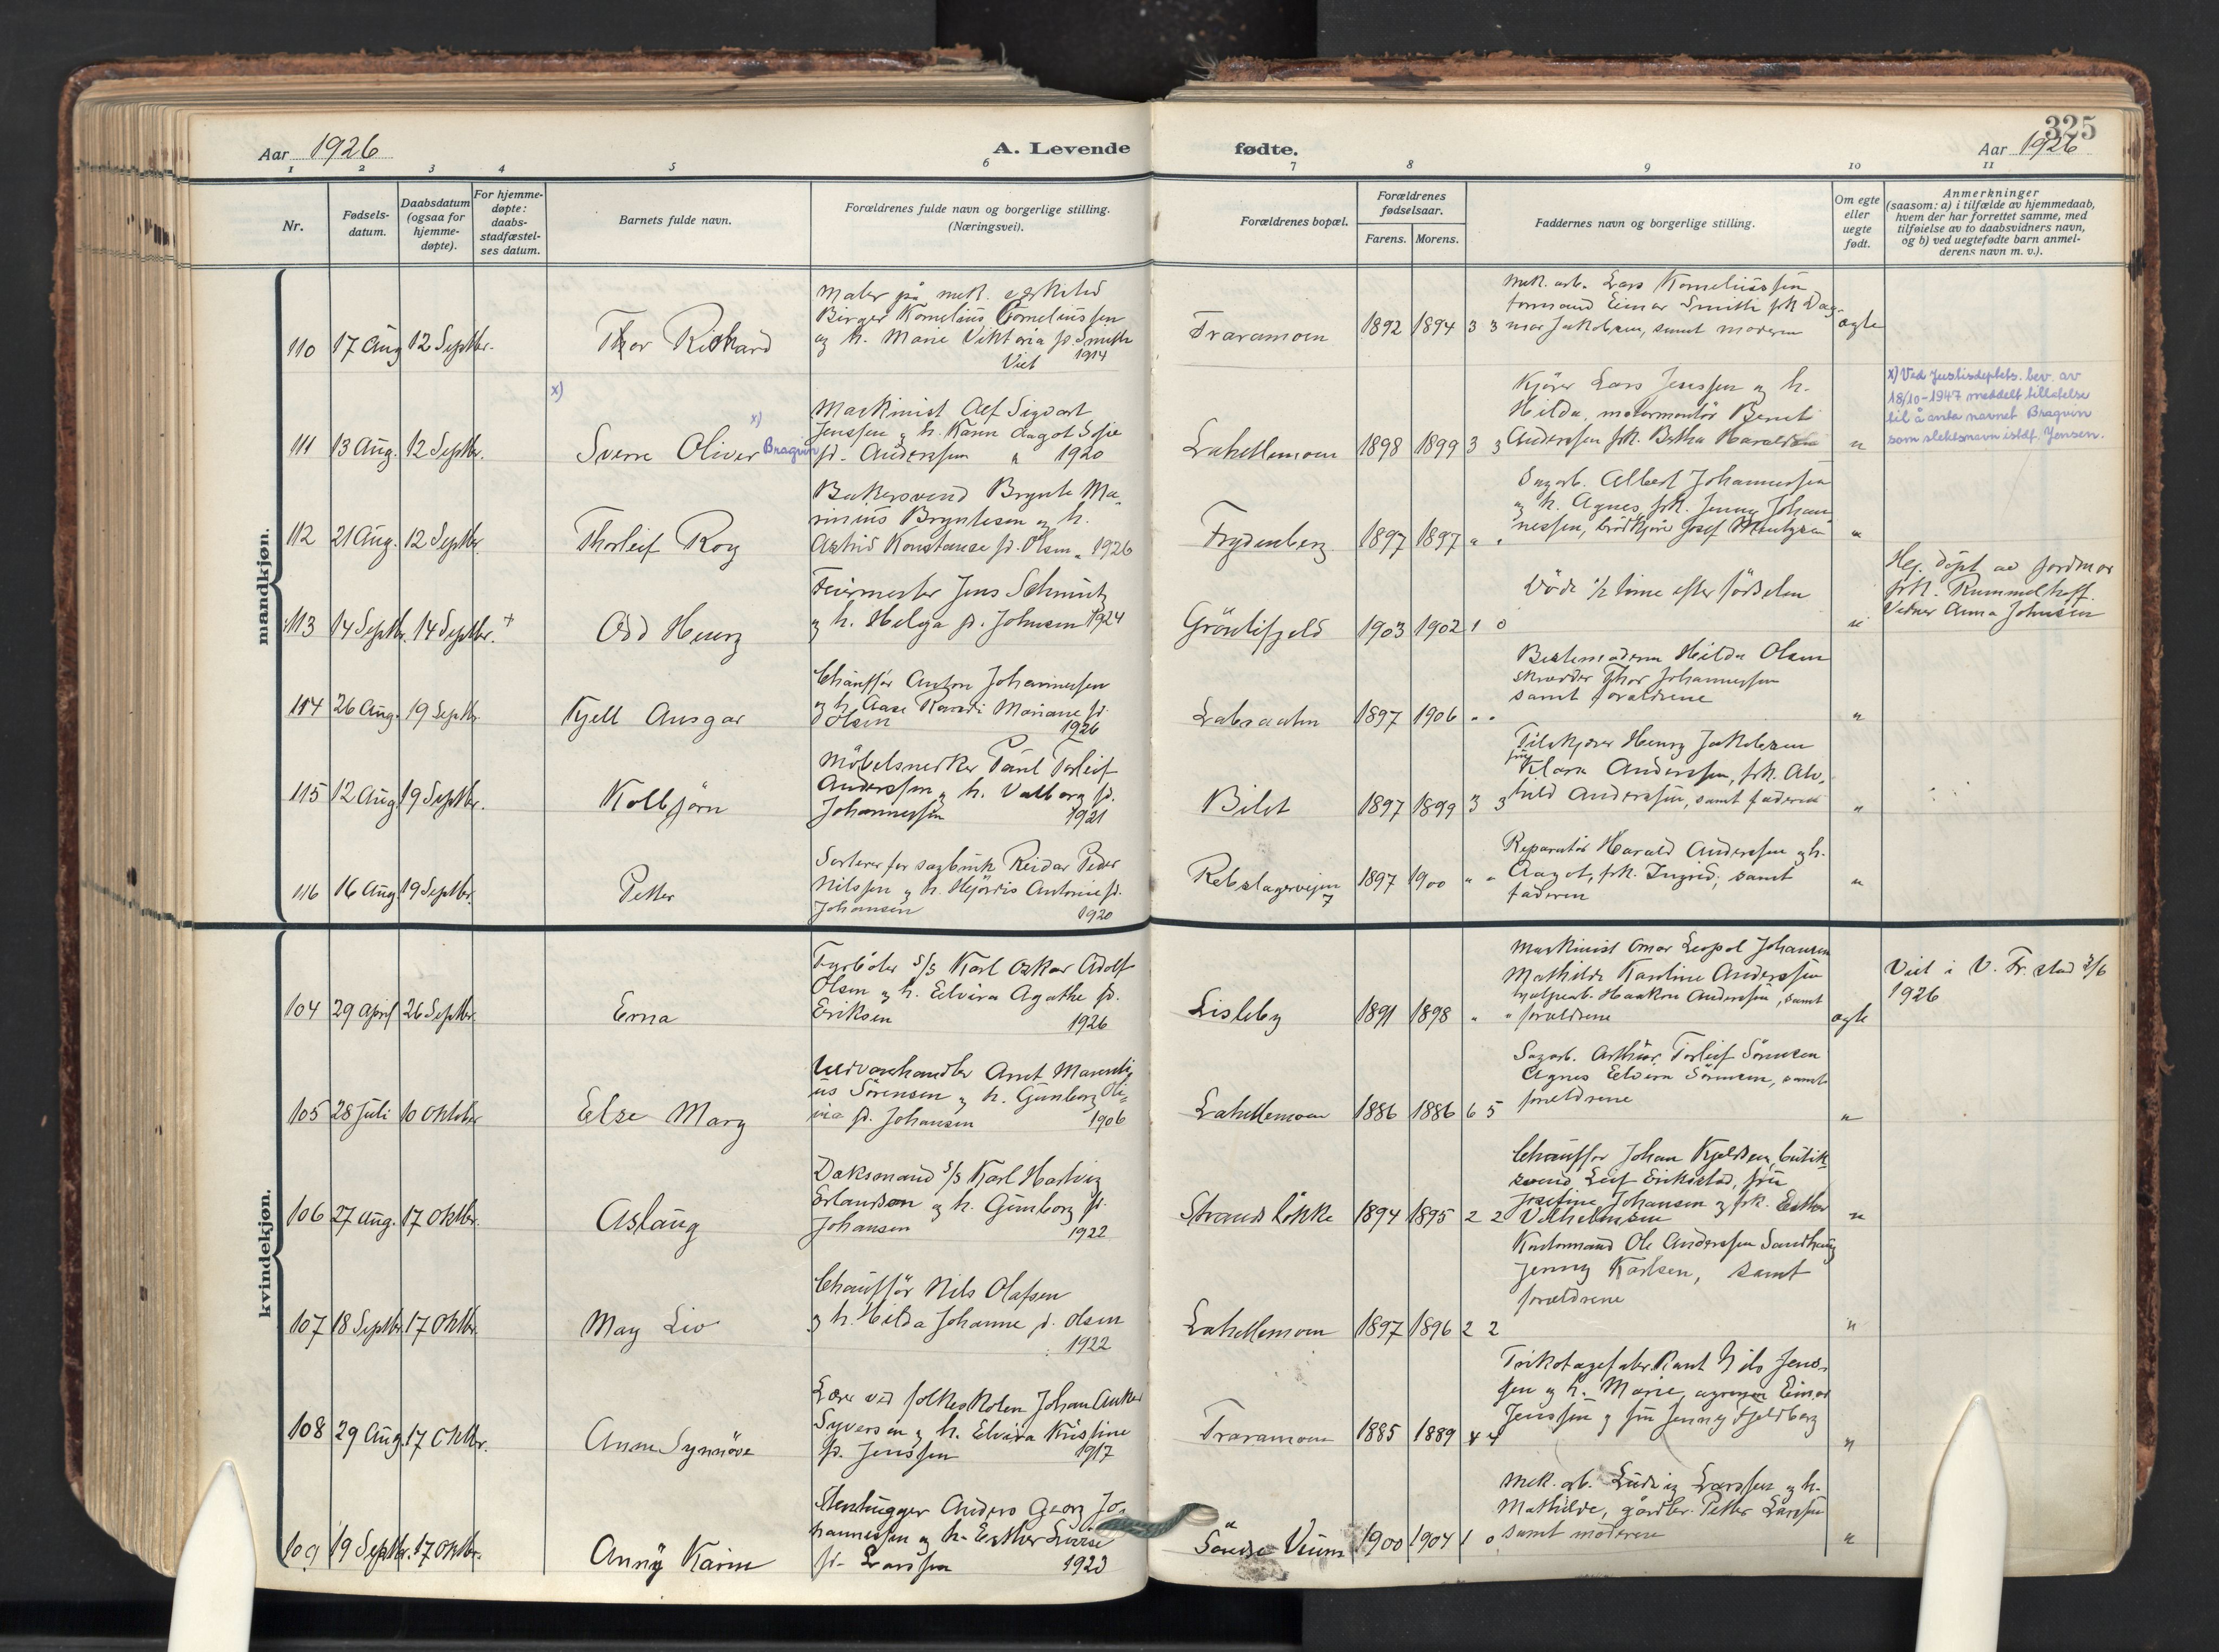 325
Aar 1926
A. Levende
fødte.
Aar 1926
1 2 3 4 5 6 7 8 9 10 11
Nr.
Fødsels-
datum.
Daabsdatum
(ogsaa for
hjemme-
døpte).
For hjemme-
døpte:
daabs-
stadfæstel-
ses datum.
Barnets fulde navn.
Forældrenes fulde navn og borgerlige stilling.
(Næringsvei).
Forældrenes bopæl.
Forældrenes
fødselsaar.
Farens. Morens.
Faddernes navn og borgerlige stilling.
Om egte
eller
uegte
født.
Anmerkninger
(saasom: a) i tilfælde av hjemmedaab,
hvem der har forrettet samme, med
tilføielse av to daabsvidners navn,
og b) ved uegtefødte barn anmel-
derens navn m. v.).
mandkjøn.
110 17 Aug 12 Septbr.
Thor Richard
Maler på mek. verksted
Birger Kornelius Corneliussen
og h. Marie Viktoria f. Smith
Viet 1914
Traramoen 1892 1894 3 3
Mek. arb. Lars Korneliussen
formand Einar Smith frk Dag-
mar Jakobsen, samt moderen
ægte
111 13 Aug. 12 Septbr.
x)
Sverre Oliver x) Bragvin
Maskinist Alf Sigvart
Jenssen og h. Karen Aagot Sofie
fd. Anderssen " 1920
Lahellemoen 1898 1899 3 3
Kjører Lars Jenssen og h.
Hilda, motormontör Bernt
Anderssen frk. Betha Haraldsen
"
x) Ved Justisdeptets. bev. av
18/10-1947 meddelt tillatelse
til å anta navnet Bragvin
som slektsnavn istdf. Jensen.
112 21 Aug. 12 Septbr.
Thorleif Roy
Bakersvend Brynte Ma-
rinius Bryntesen og h.
Astrid Konstanse fd. Olsen " 1926
Frydenberg 1897 1897 " "
Sagarb. Albert Johannessen
og h. Agnes, frk. Jenny Johan
nessen, brödkjöre Josef Mentzen
"
113 14 Septbr. 14 Septbr. +
Odd Henry
Feiermester Jens Schmintz
og h. Helga fd. Johnsen 1924
Grönlifjeld 1903 1902 1 0
Döde 1/2 time efter födselen
"
Hj. döpt av jordmor
frk. Rummelhoff.
Vidner Anna Johnsen
114 26 Aug. 19 Septbr
Kjell Ansgar
Chauffør Anton Johannessen
og h. Aase Randi Mariane fd.
Olsen 1926
Labraaten 1897 1906 " "
Bestemoderen Hilda Olsen
skrædder Thor Johannessen
samt forældrene
"
115 12 Aug. 19 Septbr.
Kolbjörn
Möbelsnedker Paul Torleif
Anderssen og h. Valborg fd.
Johannessen 1921
Bilet 1897 1899 3 3
Bilskjører Henry Jakobsen
fru Klara Anderssen, frk. Alv-
hild Anderssen, samt faderen
"
116 16 Aug. 19 Septbr.
Petter
Sorterer for sagbruk Reidar Peder
Nilssen og h. Hjördis Antonie fd.
Johansen 1920
Rebslagerveien 7 1897 1900 " "
Reparatör Harald Anderssen og h.
Aagot, frk. Ingrid, samt
faderen
"
kvindekjøn.
104 29 April 26 Septbr
Erna
Fyrböter S/S Karl Oskar Adolf
Olsen og h. Elvira Agathe fd.
Eriksen 1926
Lisleby 1891 1898 " "
Maskinist Omar Leopol Johansen
Mathilde Karoline Anderssen
hjælpearb. Haakon Anderssen, samt
forældrene
ægte
Viet i V. Fr. stad 3/6
1926
105 28 Juli 10 Oktober
Else Mary
Uldvarehandler Arnt Marenti-
us Sörensen og h. Gunborg Oli-
via fd. Johansen 1906
Lahellemoen 1886 1886 6 5
Sagarb. Arthur Torleif Sörensen
Agnes Elvira Sörensen, samt
forældrene
"
106 27 Aug. 17 Oktbr.
Aslaug
Daksmand S/S Karl Hartvig
Erlandsen og h. Gunborg fd.
Johansen 1922
Strandlökke 1894 1895 2 2
Chauffør Johan Kjeldsen, butik
svend Leif Erikstad, fru
Josefine Johansen og frk. Esther
Vilhelmsen
"
107 18 Septbr. 17 Oktbr.
May Liv
Chauffør Nils Olafsen
og h. Hilda Johanne f. Olsen
1922
Lahellemoen 1897 1896 2 2
Kontormand Ole Anderssen Sandhaug
Jenny Karlsen, samt
forældrene
"
108 29 Aug. 17 Oktbr.
Anne Synnöve
Lærer ved folkeskolen Johan Anker
Syversen og h. Elvira Kristine
fd. Jenssen 1917
Traramoen 1885 1889 4 4
Trikotagefabrikant Nils Jens-
sen og h. Marie, agronom Einar
Jenssen og fru Jenny Fjeldberg
"
109 19 Septbr. 17 Oktbr.
Anny Karin
Stenhugger Anders Georg Jo-
hannessen og h. Esther Lovise
fd. Larssen 1923
Söndre Vium 1900 1904 1 0
Mek. arb. Ludvig Larssen og h.
Mathilde, gårdbr. Petter Larssen
samt moderen
"